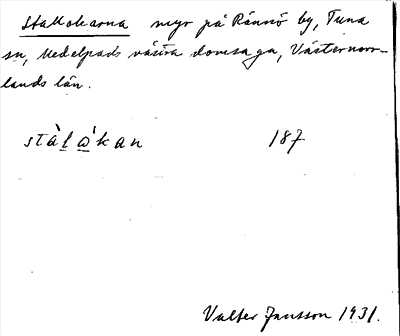 Stallokarna myr på Rännö by, Tuna
sn, Medelpads västra domsaga, Västernorr-
lands län.
stàlo̱̍kan 187
Valter Jansson 1931.